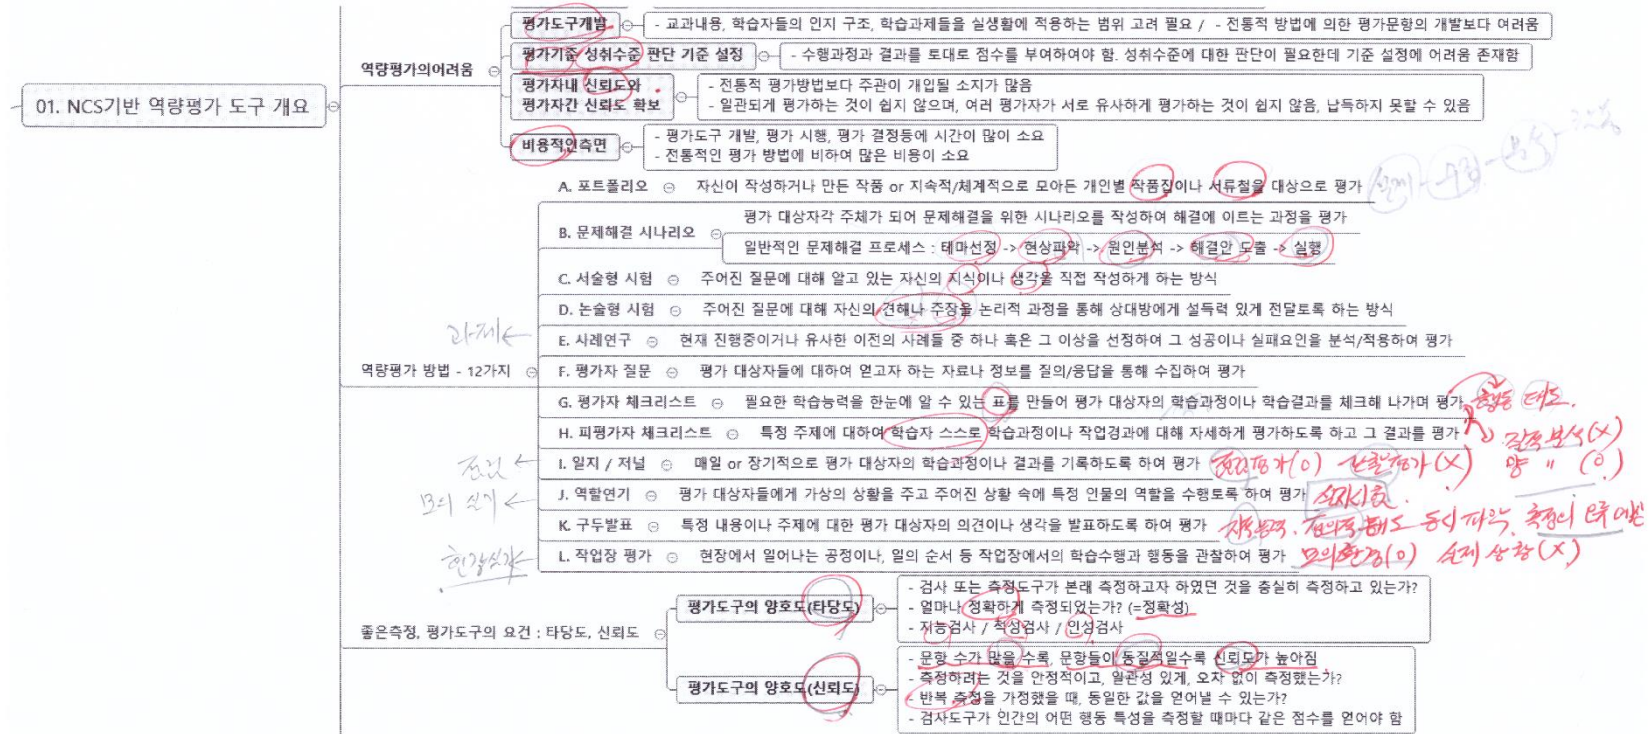 01. NCS기반 역량평가 도구 개요
역량평가의어려움
평가도구개발
- 교과내용, 학습자들의 인지 구조, 학습과제들을 실생활에 적용하는 범위 고려 필요 / - 전통적 방법에 의한 평가문항의 개발보다 여려움
평가기준 성취수준 판단 기준 설정
- 수행과정과 결과를 토대로 점수를 부여하여야 함. 성취수준에 대한 판단이 필요한데 기준 설정에 어려움 존재함
평가자내 신뢰도와
평가자간 신뢰도 확보
- 전통적 평가방법보다 주관이 개입될 소지가 많음
- 일관되게 평가하는 것이 쉽지 않으며, 여러 평가자가 서로 유사하게 평가하는 것이 쉽지 않음, 납득하지 못할 수 있음
비용적인측면
- 평가도구 개발, 평가 시행, 평가 결정등에 시간이 많이 소요
- 전통적인 평가 방법에 비하여 많은 비용이 소요
역량평가 방법 - 12가지
A. 포트폴리오
자신이 작성하거나 만든 작품 or 지속적/체계적으로 모아든 개인별 작품집이나 서류철을 대상으로 평가
B. 문제해결 시나리오
평가 대상자각 주체가 되어 문제해결을 위한 시나리오를 작성하여 해결에 이르는 과정을 평가
일반적인 문제해결 프로세스 : 테마선정 -> 현상파악 -> 원인분석 -> 해결안 도출 -> 실행
C. 서술형 시험
주어진 질문에 대해 알고 있는 자신의 지식이나 생각을 직접 작성하게 하는 방식
D. 논술형 시험
주어진 질문에 대해 자신의 견해나 주장을 논리적 과정을 통해 상대방에게 설득력 있게 전달토록 하는 방식
과제
E. 사례연구
현재 진행중이거나 유사한 이전의 사례들 중 하나 혹은 그 이상을 선정하여 그 성공이나 실패요인을 분석/적용하여 평가
F. 평가자 질문
평가 대상자들에 대하여 얻고자 하는 자료나 정보를 질의/응답을 통해 수집하여 평가
G. 평가자 체크리스트
필요한 학습능력을 한눈에 알 수 있는 표를 만들어 평가 대상자의 학습과정이나 학습결과를 체크해 나가며 평가
행동 태도.
H. 피평가자 체크리스트
특정 주제에 대하여 학습자 스스로 학습과정이나 작업경과에 대해 자세하게 평가하도록 하고 그 결과를 평가
질적분석(X)
양 〃 (O)
I. 일지 / 저널
매일 or 장기적으로 평가 대상자의 학습과정이나 결과를 기록하도록 하여 평가
(O) (X)
모의 실기
J. 역할연기
평가 대상자들에게 가상의 상황을 주고 주어진 상황 속에 특정 인물의 역할을 수행토록 하여 평가
K. 구두발표
특정 내용이나 주제에 대한 평가 대상자의 의견이나 생각을 발표하도록 하여 평가
동시 파악.
L. 작업장 평가
현장에서 일어나는 공정이나, 일의 순서 등 작업장에서의 학습수행과 행동을 관찰하여 평가
모의환경(O) 실제상황(X)
좋은측정, 평가도구의 요건 : 타당도, 신뢰도
평가도구의 양호도(타당도)
- 검사 또는 측정도구가 본래 측정하고자 하였던 것을 충실히 측정하고 있는가?
- 얼마나 정확하게 측정되었는가? (=정확성)
- 지능검사 / 적성검사 / 인성검사
평가도구의 양호도(신뢰도)
- 문항 수가 많을 수록, 문항들이 동질적일수록 신뢰도가 높아짐
- 측정하려는 것을 안정적이고, 일관성 있게, 오차 없이 측정했는가?
- 반복 측정을 가정했을 때, 동일한 값을 얻어낼 수 있는가?
- 검사도구가 인간의 어떤 행동 특성을 측정할 때마다 같은 점수를 얻어야 함